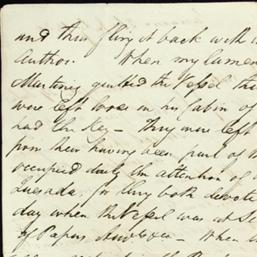 and then fling it back with
Author. When my lamen
Martinez quitted the Vessel the
were left loose in his Cabin of
had the Key - They were left
from their having been part of
occupied daily the attention of
Quesada, for they both devote
day when the Vessel was at
of Papers